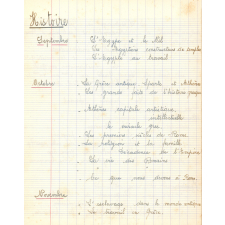 Histoire
Septembre L'Egypte et le Nil
Les Egyptiens constructeurs de temples
L'Egypte au travail
Octobre La Grèce antique. Sparte et Athènes
Les grands faits de l'histoire grecque
Athènes capitale artistique,
intellectuelle
Le miracle grec
Les premiers siècles de Rome
La religion et la famille
Décadence de l'Empire
La vie des Romains
Ce que nous devons à Rome
Novembre
L'esclavage dans le monde antique
Le travail en Grèce